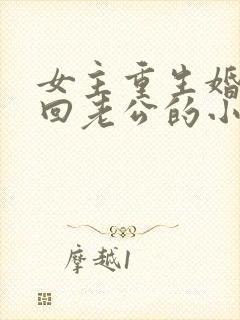 女主重生婚
回老公的小
摩越1